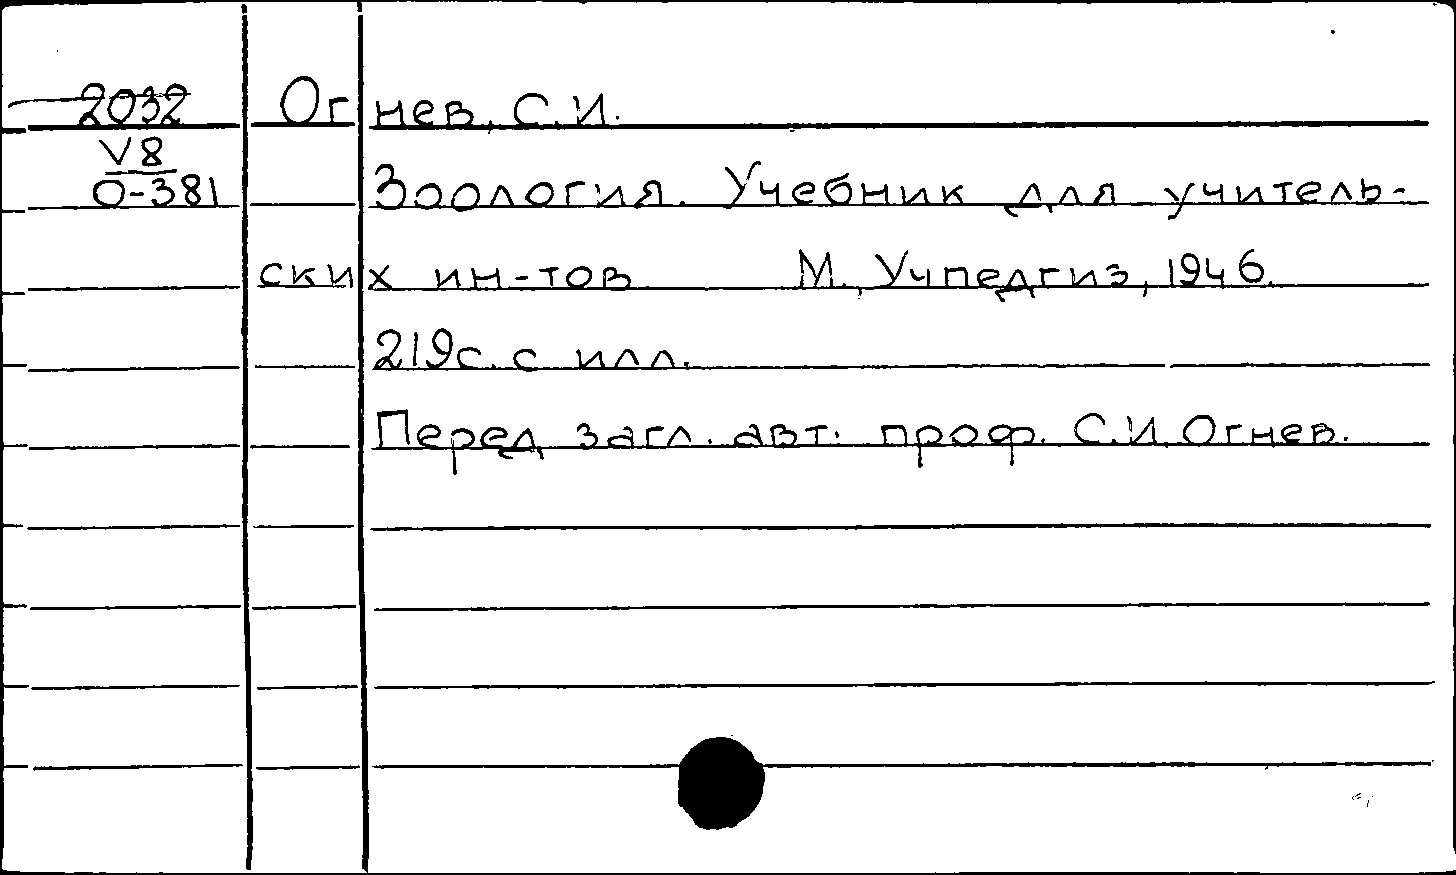 2032 Огнев, С.И.
V8
О-381 Зоология. Учебник для учитель-
ских ин-тов М., Учпедгиз, 1946.
219с. с илл.
Перед загл. авт. проф. С.И. Огнев.